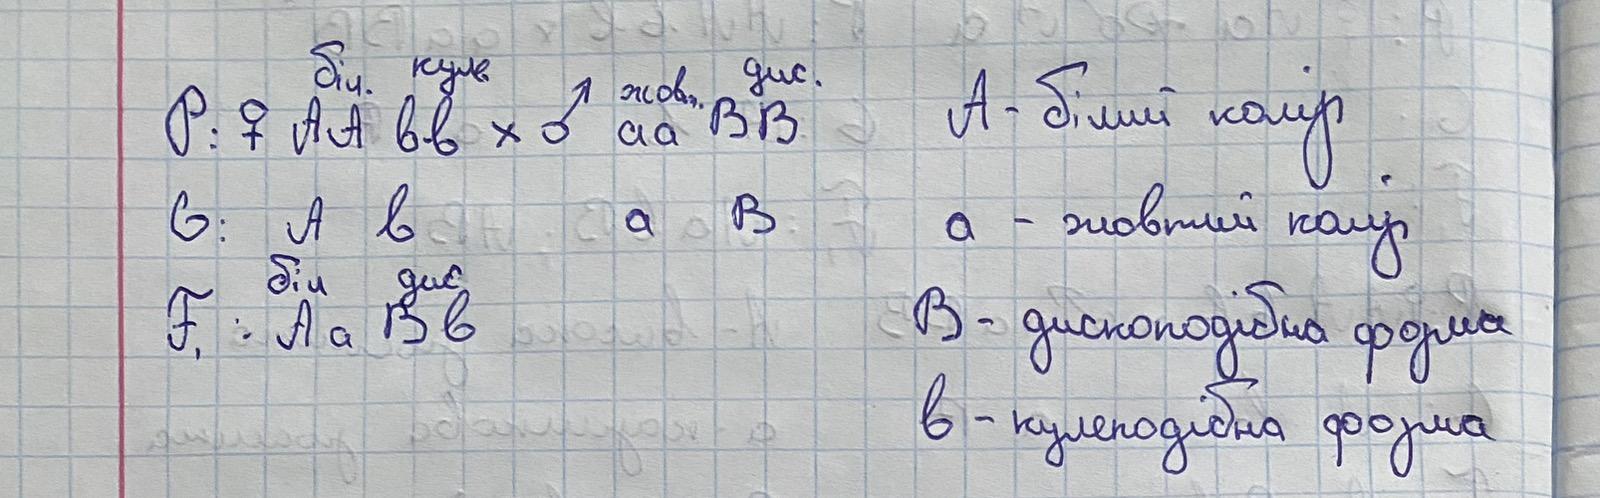 біл. куле.
P: ♀ AA вв × ♂ жовт. aa дис. BB
G: A в a B
біл дис
F₁: Aa Bв
A - білий колір
a - жовтий колір
B - дископодібна форма
в - кулеподібна форма